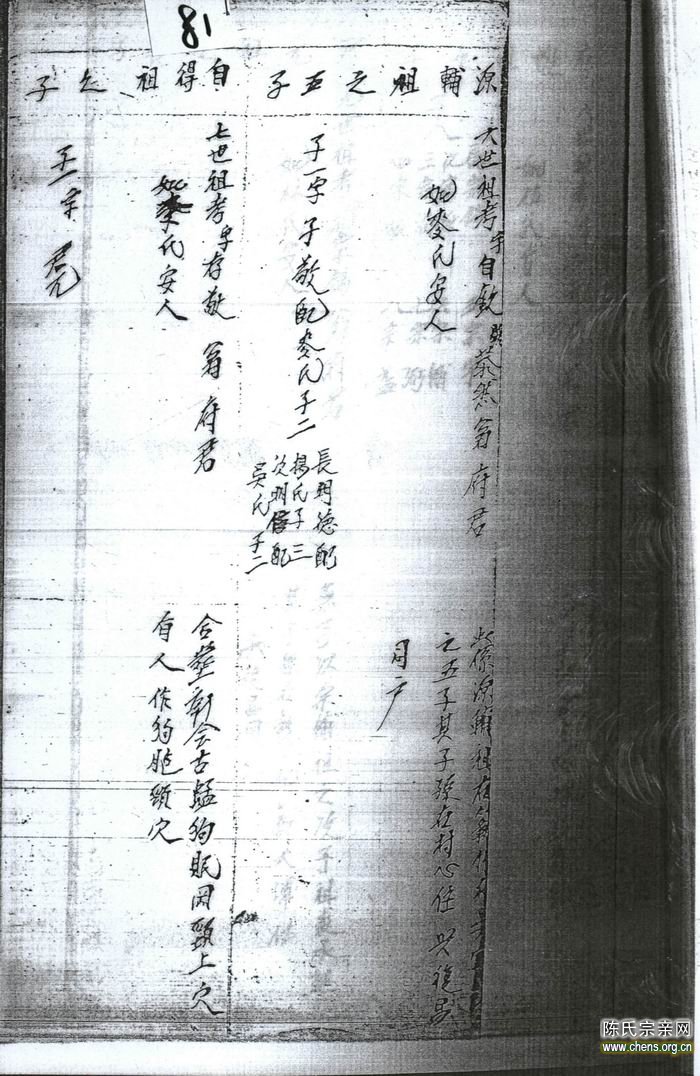 18
源輔祖之五子
自得祖之子
六世祖考字自欽號蔡然翁府君
妣麥氏安人
此係源輔祖
之五子其子孫在村心住 與
同户
子一字子敬配麥氏子二
長明德配
楊氏子三
次明 配
吳氏子二
七世祖考字存敬 翁府君
妣李氏安人
合塟新会古猛狗眠岡頸上穴
有人作狗膽頸穴
子一字
陈氏宗亲网
www.chens.org.cn